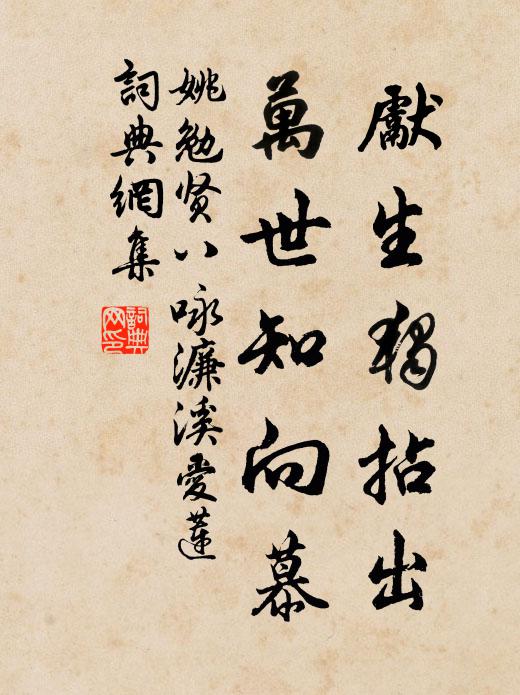 獻生獨拈出
萬世知向慕
姚勉贤八咏濂溪愛蓮
詞典網集
詞典网印